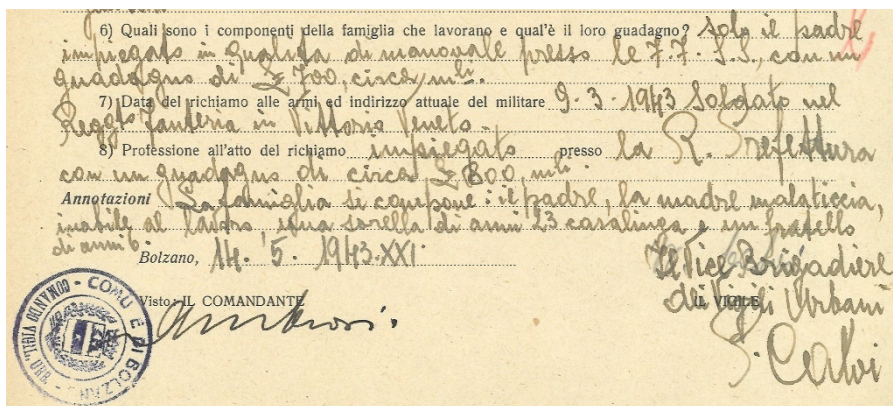 6) Quali sono i componenti della famiglia che lavorano e qual'è il loro guadagno? Solo il padre
impiegato in qualità di manovale presso le F.F. S.S., con un
guadagno di £ 700, circa, mli.
7) Data del richiamo alle armi ed indirizzo attuale del militare 9-3-1943 Soldato nel
Reggto Fanteria in Vittorio Veneto.
8) Professione all'atto del richiamo impiegato presso la R. Prefettura
con un guadagno di circa £ 800, mli.
Annotazioni La famiglia si compone: il padre, la madre malaticcia,
inabile al lavoro, una sorella di anni 23 casalinga e un fratello
di anni 6.
Bolzano, 14. 5. 1943-XXI.
Il Vice Brigadiere
Visto: IL COMANDANTE IL VIGILE
dei Vigili Urbani
Ambrosi.
S. Calvi
COMUNE DI BOLZANO - COMANDO VIGILI URB.